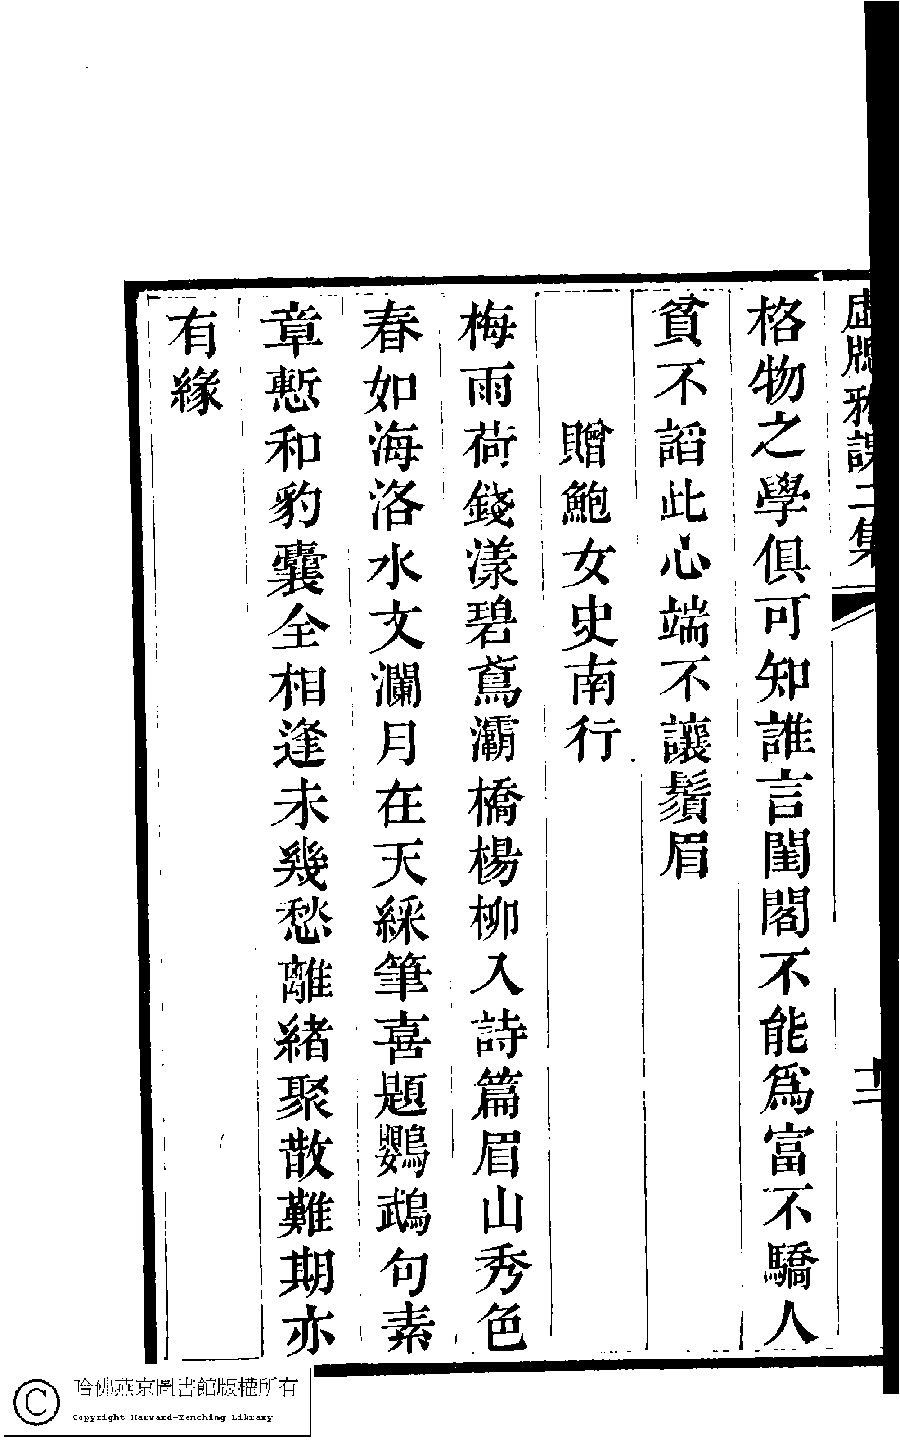 虛牕雅課二集
十二
格物之學俱可知誰言閨閣不能爲富不驕人
貧不謟此心端不讓鬚眉
贈鮑女史南行
梅雨荷錢漾碧鳶灞橋楊柳入詩篇眉山秀色
春如海洛水文瀾月在天綵筆喜題鸚鵡句素
章慙和豹囊全相逢未幾愁離緒聚散難期亦
有緣
哈佛燕京圖書館版權所有
Copyright Harvard-Yenching Library